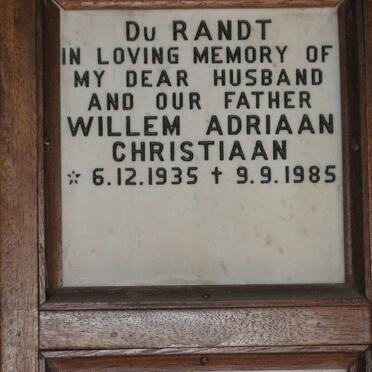 Du RANDT
IN LOVING MEMORY OF
MY DEAR HUSBAND
AND OUR FATHER
WILLEM ADRIAAN
CHRISTIAAN
* 6.12.1935 † 9.9.1985